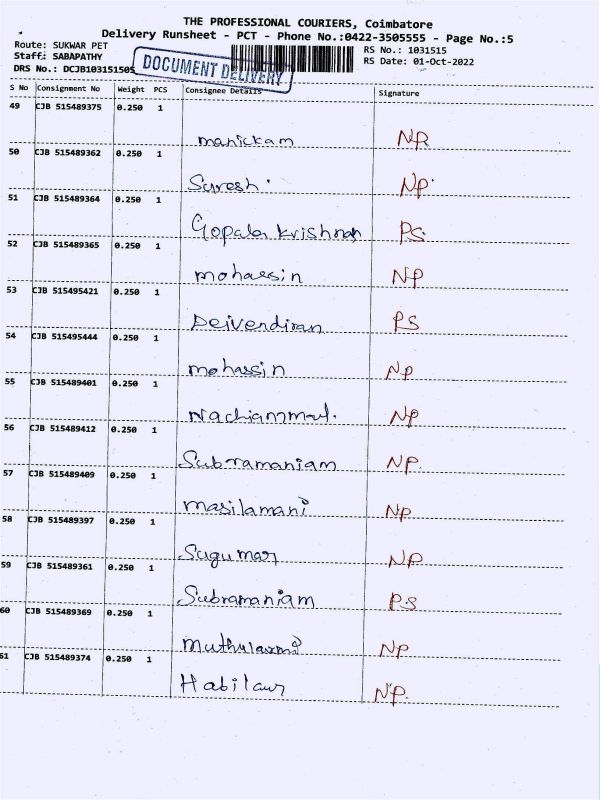 THE PROFESSIONAL COURIERS, Coimbatore
Delivery Runsheet - PCT - Phone No.:0422-3505555 - Page No.:5
Route: SUKWAR PET
RS No.: 1031515
Staff: SABAPATHY
RS Date: 01-Oct-2022
DRS No.: DCJB103151505
DOCUMENT DELIVERY
S No Consignment No Weight PCS Consignee Details Signature
49 CJB 515489375 0.250 1
manickam NP
50 CJB 515489362 0.250 1
Suresh. NP.
51 CJB 515489364 0.250 1
Gopala krishnan PS
52 CJB 515489365 0.250 1
mohassin NP
53 CJB 515495421 0.250 1
Deivendiran PS
54 CJB 515495444 0.250 1
mohassin NP
55 CJB 515489401 0.250 1
Nachiammal. NP
56 CJB 515489412 0.250 1
Subramaniam NP.
57 CJB 515489409 0.250 1
masilamani NP
58 CJB 515489397 0.250 1
Sugumar NP
59 CJB 515489361 0.250 1
Subramaniam PS
60 CJB 515489369 0.250 1
muthulaxmi NP
61 CJB 515489374 0.250 1
NP.